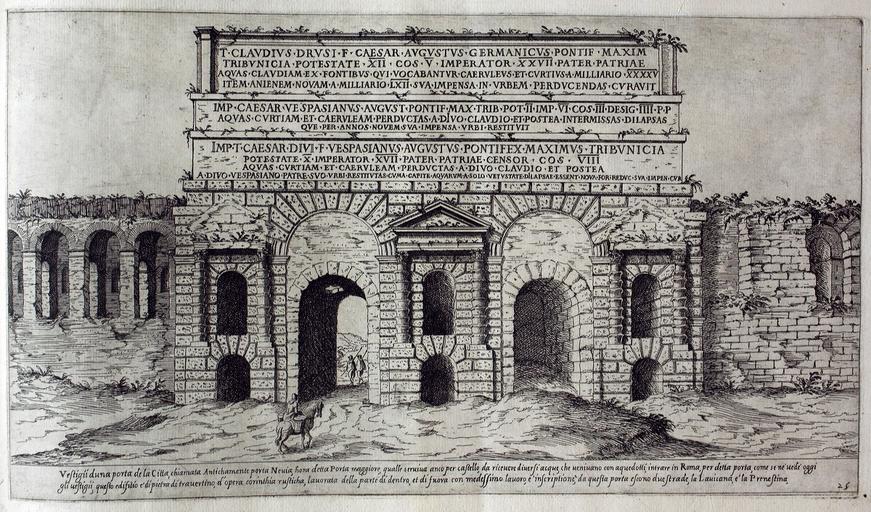 T·CLAVDIVS·DRVSI·F·CAESAR·AVGVSTVS·GERMANICVS·PONTIF·MAXIM
TRIBVNICIA·POTESTATE·XII·COS·V·IMPERATOR·XXVII·PATER·PATRIAE
AQVAS·CLAVDIAM·EX·FONTIBVS·QVI·VOCABANTVR·CAERVLEVS·ET·CVRTIVS·A·MILLIARIO·XXXXV
ITEM·ANIENEM·NOVAM·A·MILLIARIO·LXII·SVA·IMPENSA·IN·VRBEM·PERDVCENDAS·CVRAVIT
IMP·CAESAR·VESPASIANVS·AVGVST·PONTIF·MAX·TRIB·POT·II·IMP·VI·COS·III·DESIG·IIII·P·P
AQVAS·CVRTIAM·ET·CAERVLEAM·PERDVCTAS·A·DIVO·CLAVDIO·ET·POSTEA·INTERMISSAS·DILAPSAS
QVE·PER·ANNOS·NOVEM·SVA·IMPENSA·VRBI·RESTITVIT
IMP·T·CAESAR·DIVI·F·VESPASIANVS·AVGVSTVS·PONTIFEX·MAXIMVS·TRIBVNICIA
POTESTATE·X·IMPERATOR·XVII·PATER·PATRIAE·CENSOR·COS·VIII
AQVAS·CVRTIAM·ET·CAERVLEAM·PERDVCTAS·A·DIVO·CLAVDIO·ET·POSTEA
A·DIVO·VESPASIANO·PATRE·SVO·VRBI·RESTITVTAS·CVM·A·CAPITE·AQVARVM·A·SOLO·VETVSTATE·DILAPSAE·ESSENT·NOVA·FOR·REDVC·SVA·IMPEN·CVR
Vestigii d'una porta de la Citta, chiamata Antichamente porta Neuia, hora detta Porta maggiore, qualle seruiua anco per castello, da riceuere diuerse acque, che veniuano con aquedotti intrare in Roma, per detta porta, come se ne vede oggi
gli vestigij, questo edifitio e di pietra di travertino, d'opera corinthia rusticha, lauorata della parte di dentro, et di fuora con medessimo lauoro e inscriptione, da questa porta escono due strade, la Lauicana, e la Prenestina.
25